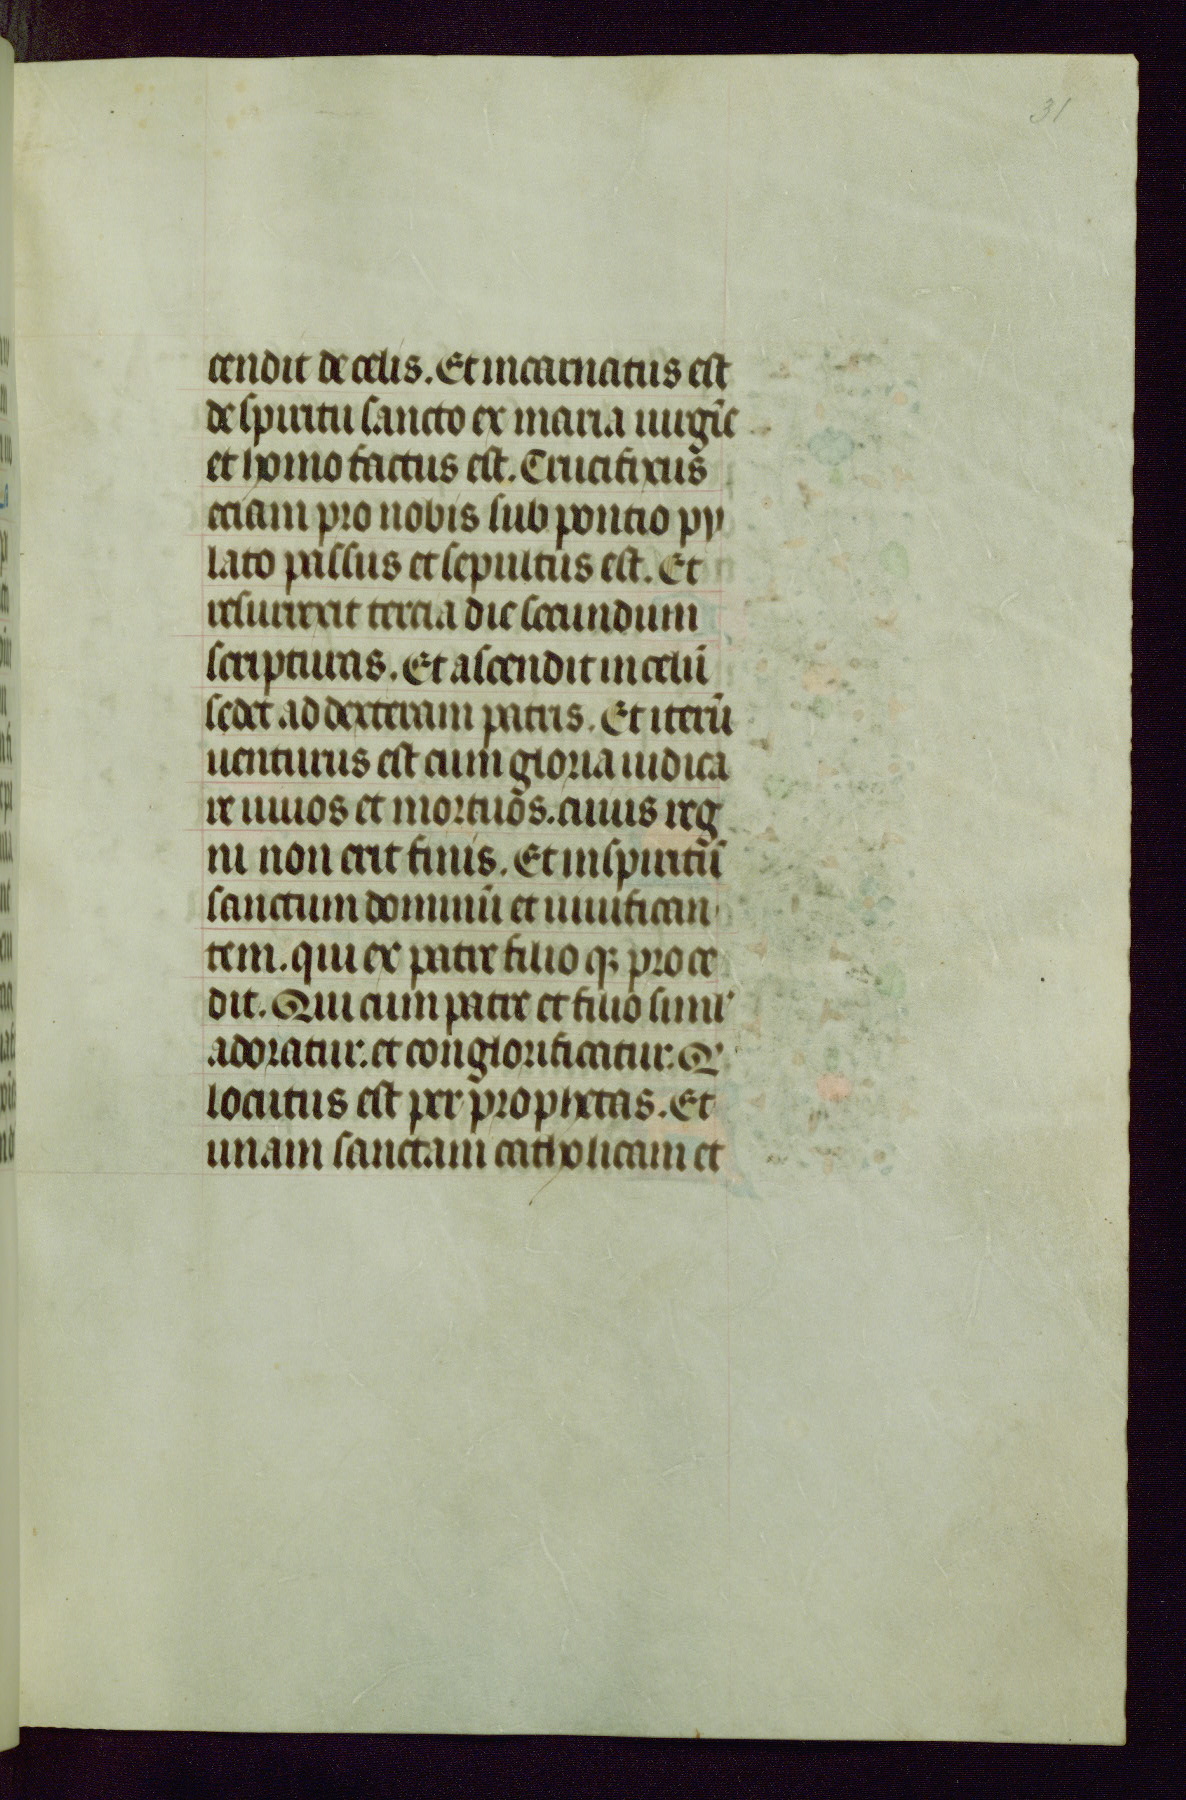 31
cendit de celis. Et incarnatus est
de spiritu sancto ex maria uirgīe
et homo factus est. Crucifixus
eciam pro nobis sub poncio py
lato passus et sepultus est. Et
resurrexit tercia die secundum
scripturas. Et ascendit in celū
sedet ad dexteram patris. Et iterū
uenturus est cum gloria iudica
re uiuos et mortuos. cuius reg
ni non erit finis. Et in spiritū
sanctum dominū et uiuifican
tem. qui ex patre filio qꝫ proce
dit. Qui cum patre et filio simł
adoratur. et conglorificatur. Q
locutus est per prophetas. Et
unam sanctam catholicam et